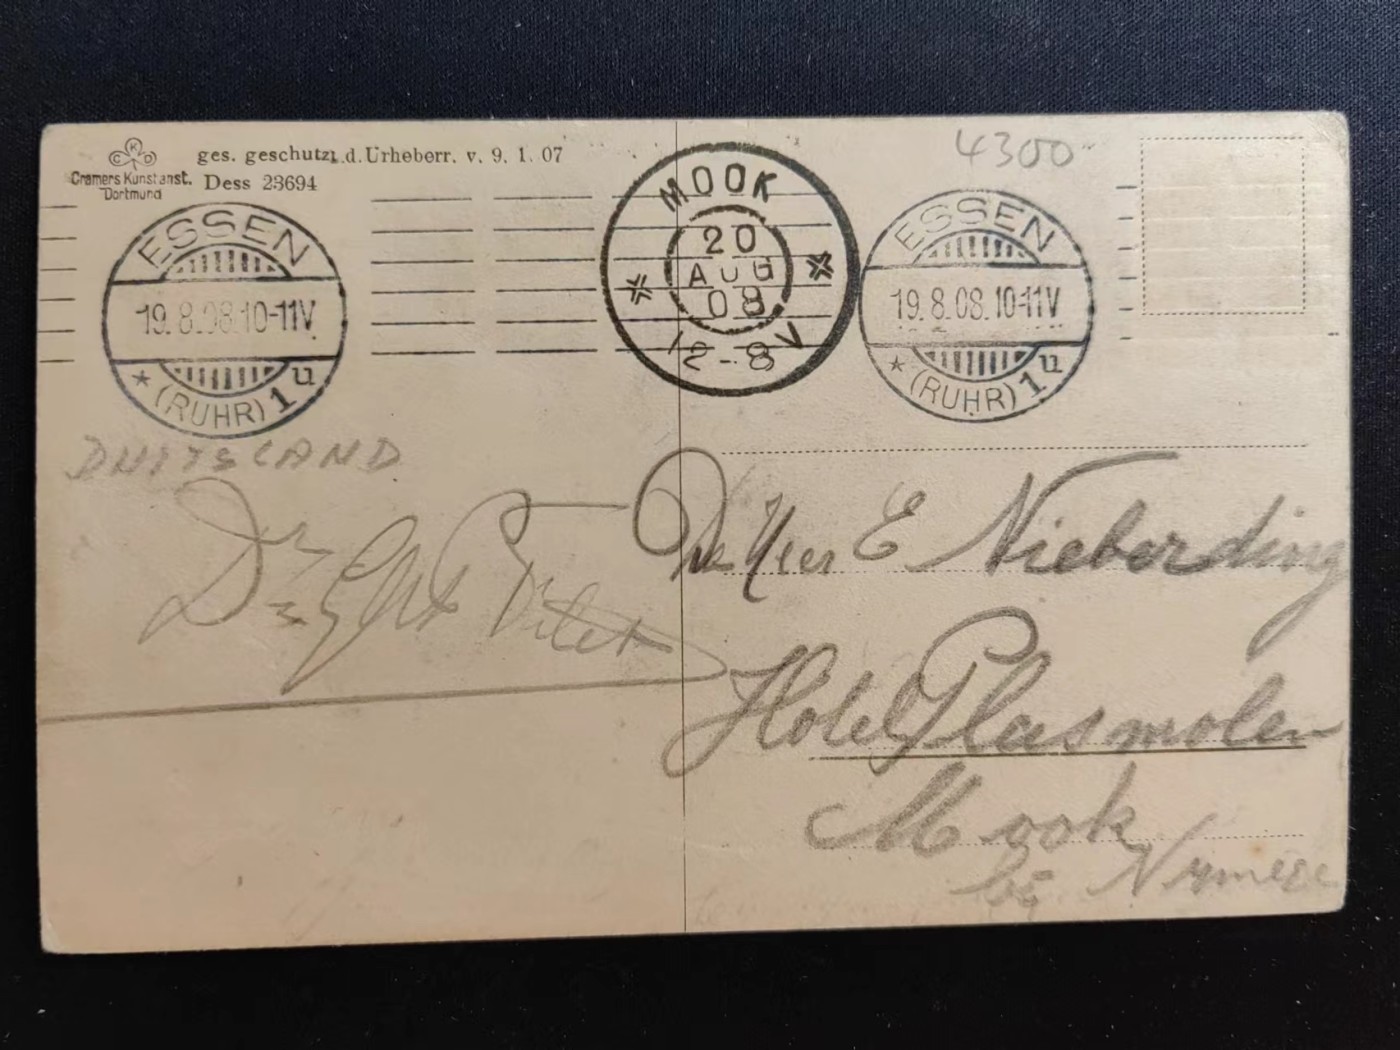 C K D
Cramers Kunstanst.
Dortmund
ges. geschützt d. Urheberr. v. 9. 1. 07
Dess 23694
4300
ESSEN
19.8.08.10-11V
* (RUHR) 1 u
MOOK
20
AUG
08
12-8V
ESSEN
19.8.08.10-11V
* (RUHR) 1 u
DUITSLAND
De Heer E Nieberding
Hotel Plasmolen
Mook
bij